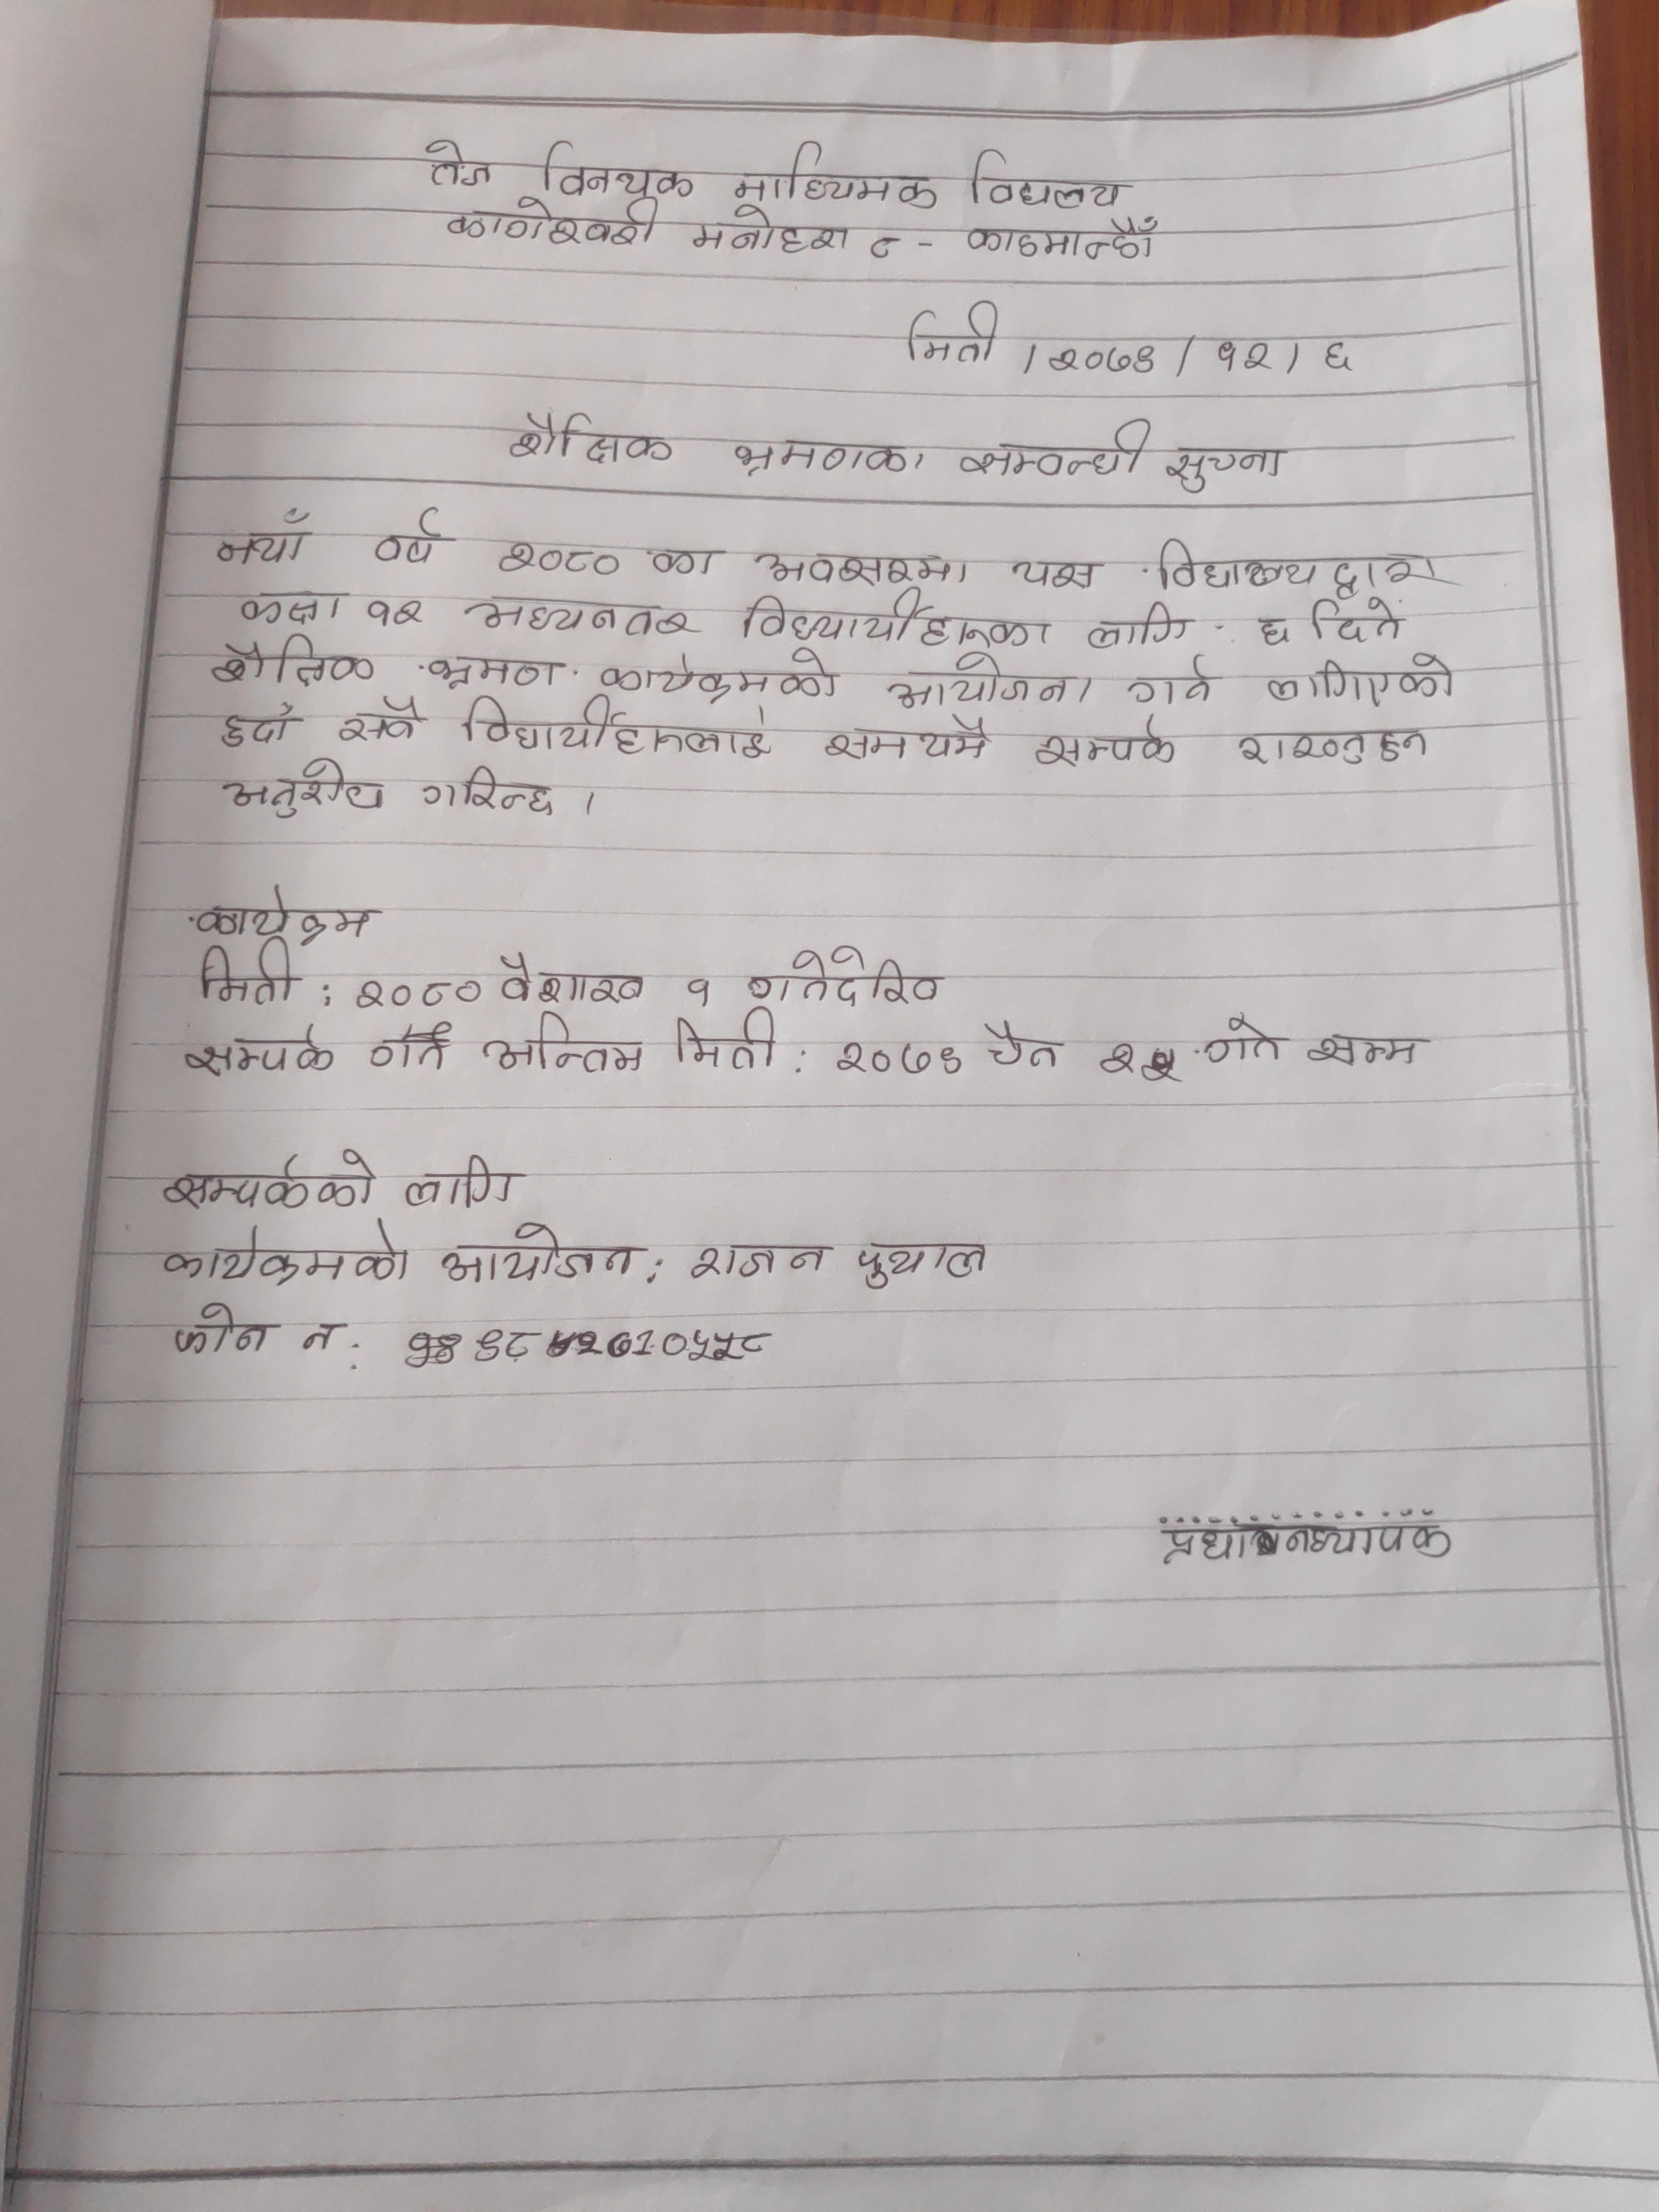 तेज विनयक माध्यिमक विद्यलय
कागेश्वरी मनोहरा ८ - काठमान्डौँ
मिती / २०७९ / १२ / ६
शैक्षिक भ्रमणका सम्वन्धी सुचना
नयाँ वर्ष २०८० का अवसरमा यस विद्यालय द्वारा
कक्षा १२ अध्यनतर विध्यार्थीहरुका लागि ६ दिने
शैक्षिक भ्रमण कार्यक्रमको आयोजना गर्न लागिएको
हुदाँ सवै विद्यार्थीहरुलाई समयमै सम्पर्क राख्नुहुन
अनुरोध गरिन्छ ।
कार्यक्रम
मिती : २०८० वैशाख १ गतेदेखि
सम्पर्क गर्ने अन्तिम मिती : २०७९ चैत २५ गते सम्म
सम्पर्कको लागि
कार्यक्रमको आयोजन : राजन पुयाल
फोन न :
प्रधानध्यापक